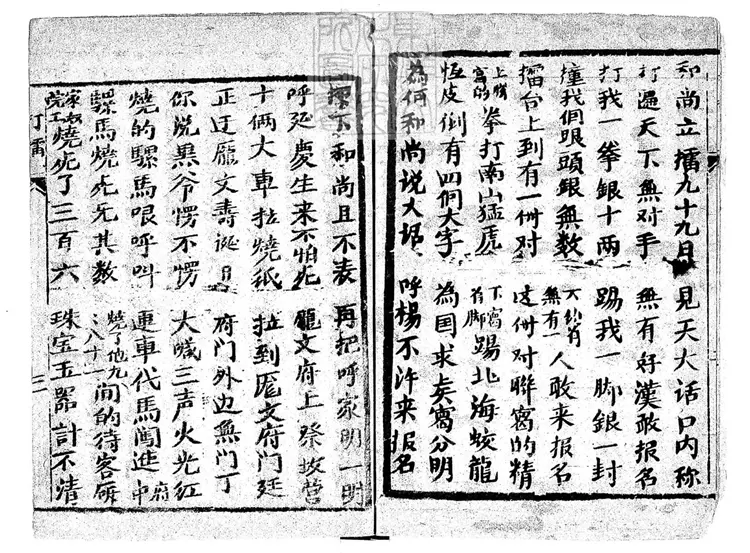 和尚立擂九十九日 見天大话口内称
打遍天下無对手 無有好漢敢报名
打我一拳銀十两 踢我一脚銀一封
撞我個眼頭銀無数 大約省無有一人敢来报名
擂台上到有一付对 這付对聯寫的精
上聯寫的拳打南山猛虎 下寫有脚踢北海蛟龍
恆皮倒有四個大字 為国求矣寫分明
為何和尚说大場 呼楊不许来报名
擂下和尚且不表 再把呼家明一明
呼延慶生来不怕死 龐文府上祭坟营
十俩大車拉燒紙 拉到龐文府門廷
正迂龐文壽诞日 府門外边無門丁
你说黑爷愣不愣 大喊三声火光红
燒的騾馬哏呼叫 連車代馬闖進府中
騾馬燒死无其数 燒了他九九八十一間的待客廍
家奴院工燒死了三百六 珠宝玉器計不清
打擂
三